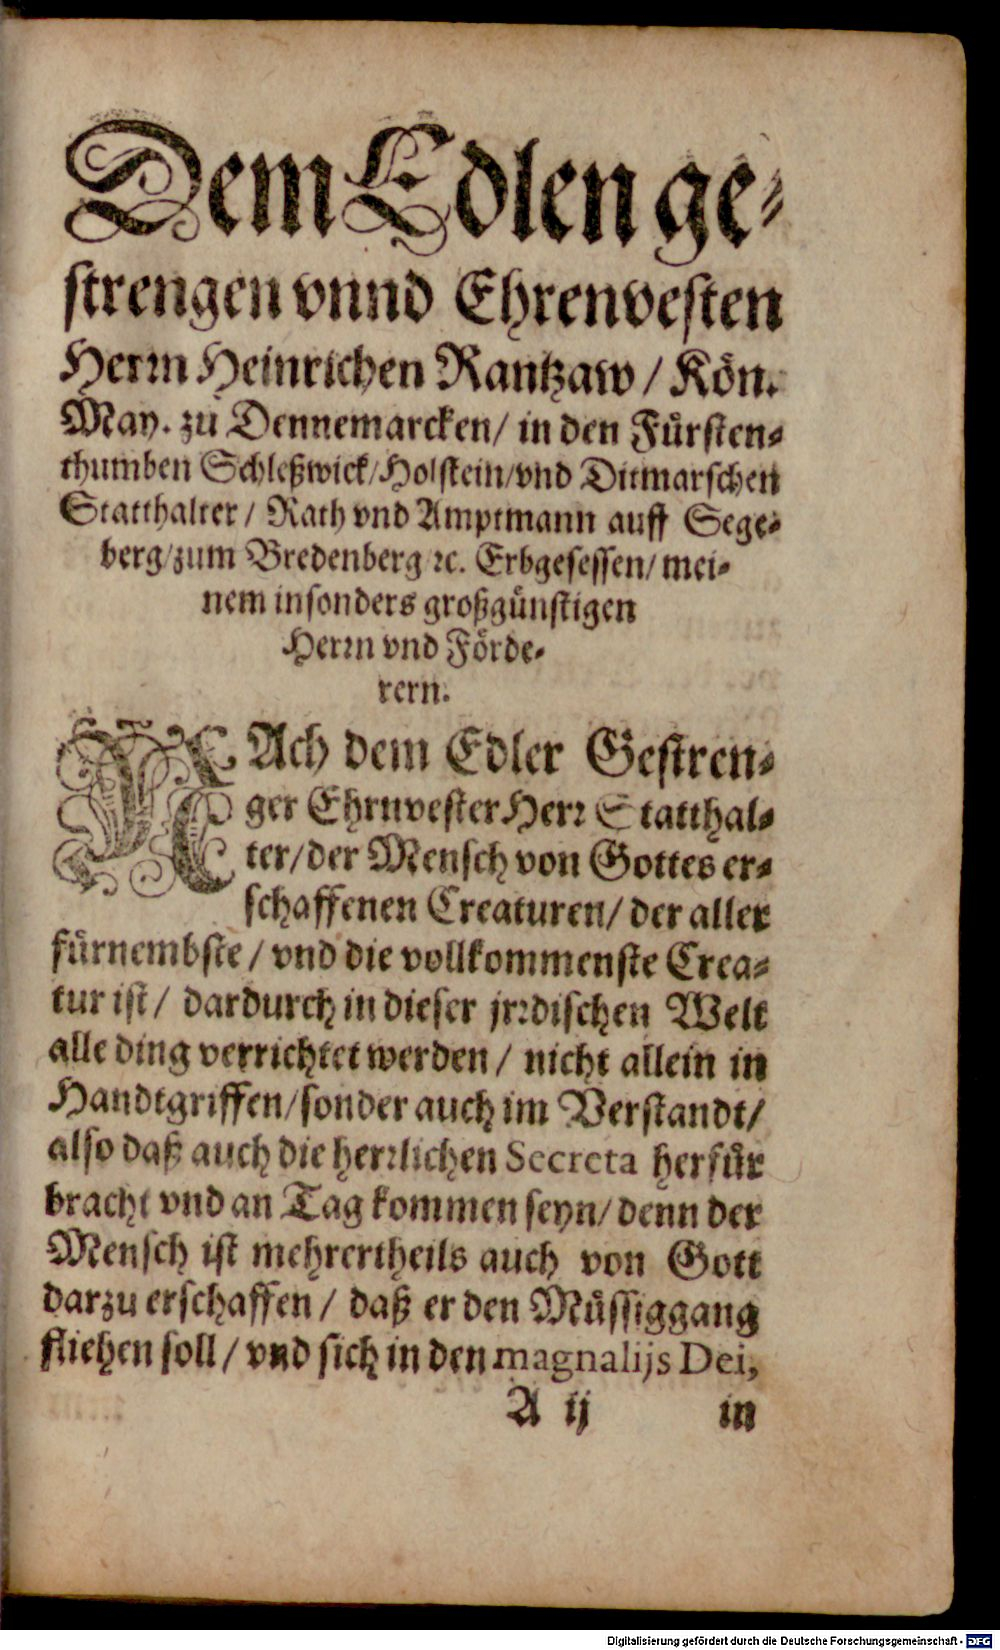 Dem Edlen ge-
strengen vnnd Ehrenvesten
Herrn Heinrichen Rantzaw / Kön.
May. zu Dennemarcken / in den Fürsten-
thumben Schleßwick / Holstein / vnd Ditmarschen
Statthalter / Rath vnd Amptmann auff Sege-
berg / zum Bredenberg ꝛc. Erbgesessen / mei-
nem insonders großgünstigen
Herrn vnd Förde-
rern.
NAch dem Edler Gestren-
ger Ehrnvester Herr Statthal-
ter / der Mensch von Gottes er-
schaffenen Creaturen / der aller
fürnembste / vnd die vollkommenste Crea-
tur ist / dardurch in dieser jrrdischen Welt
alle ding verrichtet werden / nicht allein in
Handtgriffen / sonder auch im Verstandt /
also daß auch die herrlichen Secreta herfür
bracht vnd an Tag kommen seyn / denn der
Mensch ist mehrertheils auch von Gott
darzu erschaffen / daß er den Müssiggang
fliehen soll / vnd sich in den magnalijs Dei,
A ij in
Digitalisierung gefördert durch die Deutsche Forschungsgemeinschaft - DFG